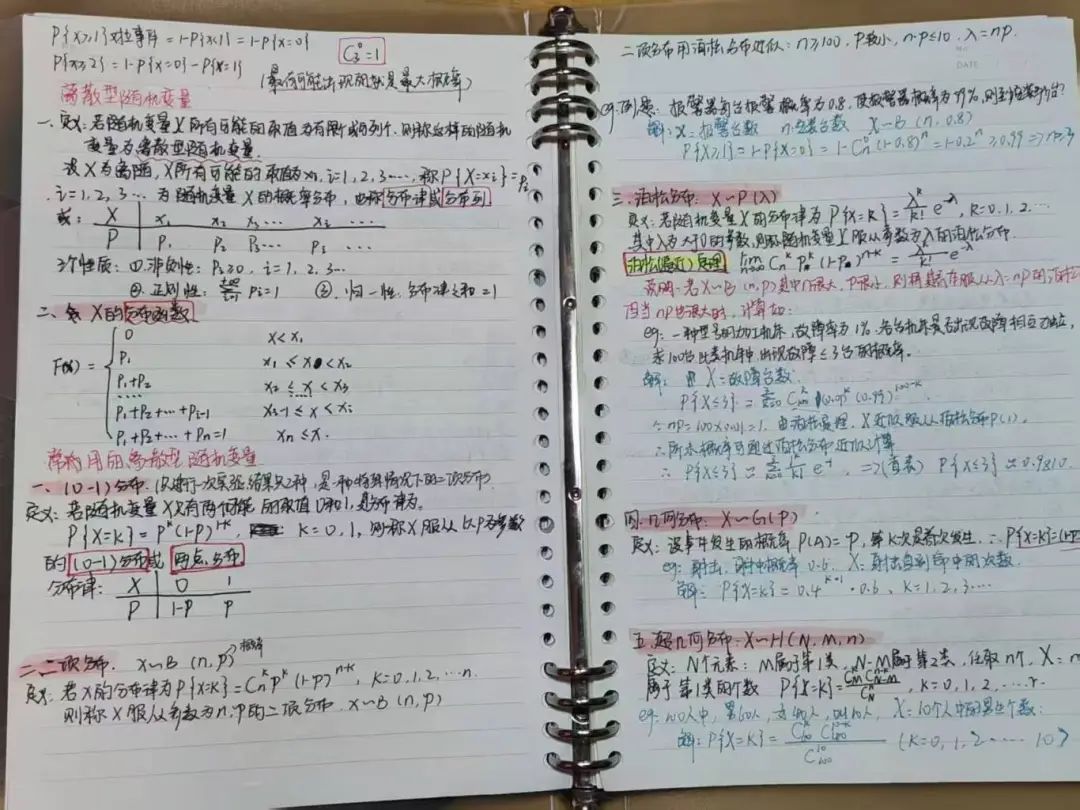 P{X≥1}对拉事件 = 1-P{X<1} = 1-P{X=0}
C₃⁰=1
P{X≥2} = 1-P{X=0}-P{X=1}
(最有可能出现的就是最大概率)
离散型随机变量
一、定义: 若随机变量X所有可能的取值为有限个或可列个, 则称这样的随机
变量为离散型随机变量.
设X为离随, X所有可能的取值为xᵢ, i=1, 2, 3…, 称P{X=xᵢ}=Pᵢ
i=1, 2, 3… 为随机变量X的概率分布, 也称分布律或分布列
或: X x₁ x₂ x₃… xᵢ …
P P₁ P₂ P₃… Pᵢ …
3个性质: ①. 非负性: Pᵢ≥0, i=1, 2, 3…
②. 正则性: ΣPᵢ=1 ③. 归一性. 分布律之和=1
二、X的分布函数
F(x) = { 0 x<x₁
P₁ x₁≤x<x₂
P₁+P₂ x₂≤x<x₃
……
P₁+P₂+…+Pᵢ₋₁ xᵢ₋₁≤x<xᵢ
P₁+P₂+…+Pn=1 xn≤x.
常用的离散型随机变量
一、(0-1)分布. (只进行一次实验, 结果只2种, 是一种特殊情况下的二项分布)
定义: 若随机变量X只有两个可能的取值0和1, 其分布律为
P{X=k} = pᵏ(1-p)¹⁻ᵏ, k=0, 1, 则称X服从以P为参数
的(0-1)分布或两点分布.
分布律: X 0 1
P 1-P P
二、二项分布. X~B(n,p) 概率
定义: 若X的分布律为P{X=k}=Cnᵏpᵏ(1-p)ⁿ⁻ᵏ, k=0, 1, 2, …n.
则称X服从参数为n, p的二项分布, X~B(n,p)
二项分布用泊松分布近似: n≥100, P较小, n·p≤10, λ=np.
DATE
eg. 例题: 报警器每台报警概率为0.8, 使报警器概率为99%, 则至少
解: X=报警台数 n=安装台数 X~B(n, 0.8)
P{X≥1} = 1-P{X=0} = 1-Cn⁰(1-0.8)ⁿ = 1-0.2ⁿ ≥0.99 ⇒ n≥3
三、泊松分布: X~P(λ)
定义: 若随机变量X的分布律为P{X=k}=λᵏ/k! e⁻λ, k=0, 1, 2…
其中λ为大于0的常数, 则称随机变量X服从参数为λ的泊松分布.
泊松(逼近)定理 lim n→∞ Cnᵏ Pnᵏ (1-Pn)ⁿ⁻ᵏ = λᵏ/k! e⁻λ
说明: 若X~B(n,p)其中n很大, P很小, 则
而当np也很大时, 计算
eg: 一种型号的加工机床, 故障率为1%. 各台机床是否出现故障相互独立,
求100台此类机床中, 出现故障≤3台的概率.
解: 由X=故障台数.
P{X≤3} = Σ C₁₀₀ᵏ (0.01)ᵏ (0.99)¹⁰⁰⁻ᵏ
∵ np=100×0.01=1. 由泊松定理, X近似服从泊松分布P(1).
∴所求概率可通过泊松分布近似计算
∴ P{X≤3} ≈ Σ 1/k! e⁻¹. ⇒(查表) P{X≤3} ≈ 0.9810.
四、几何分布: X~G(P)
定义: 设事件发生的概率P(A)=P, 第k次是首次发生, ∴P{X=k}=(1-P)
eg: 射击, 射中概率0.6. X: 射击直到命中的次数.
解: P{X=k} = 0.4ᵏ⁻¹·0.6, k=1, 2, 3…
五、超几何分布: X~H(N, M, n)
定义: N个元素: M属于第1类, N-M属于第2类, 任取n个, X=n
属于第1类的个数 P{X=k}= CMᵏ CN-Mⁿ⁻ᵏ/CNⁿ, k=0, 1, 2, …r.
eg: 100人中, 男60人, 女40人, 10人, X=10个人中的男生个数:
解: P{X=k} = C₆₀ᵏ C₄₀¹⁰⁻ᵏ/C₁₀₀¹⁰ (k=0, 1, 2……10)